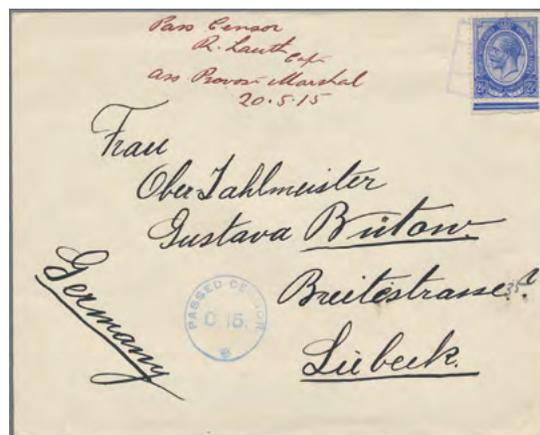 Pass Censor
R. Lauth Capt
Ass Provost Marshal
20.5.15
Frau
Ober Zahlmeister
Gustava Bütow.
Breitestrasse
Lübeck.
Germany
PASSED CENSOR
C 15.